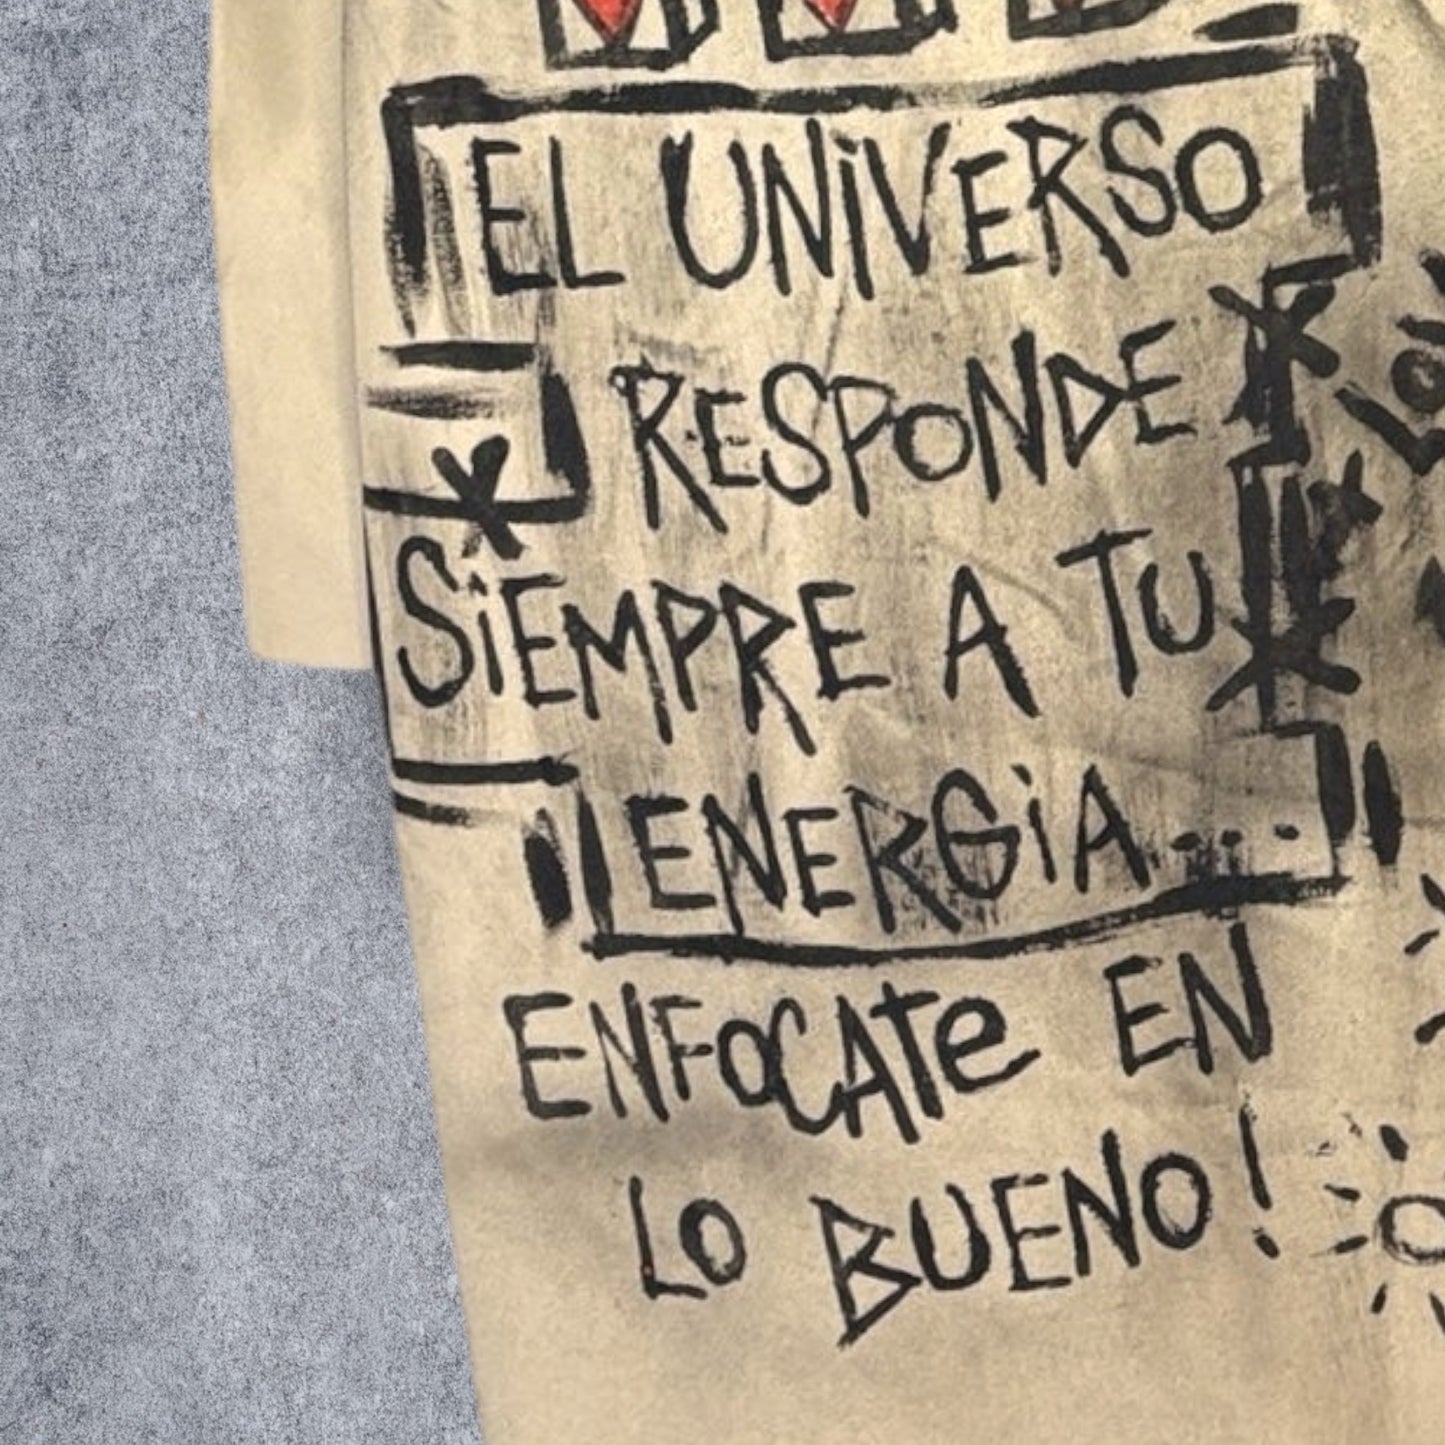 EL UNiVERSO
RESPONDE
SiEMPRE A TU
ENERGiA...
ENFOCATe EN
LO BUENO!